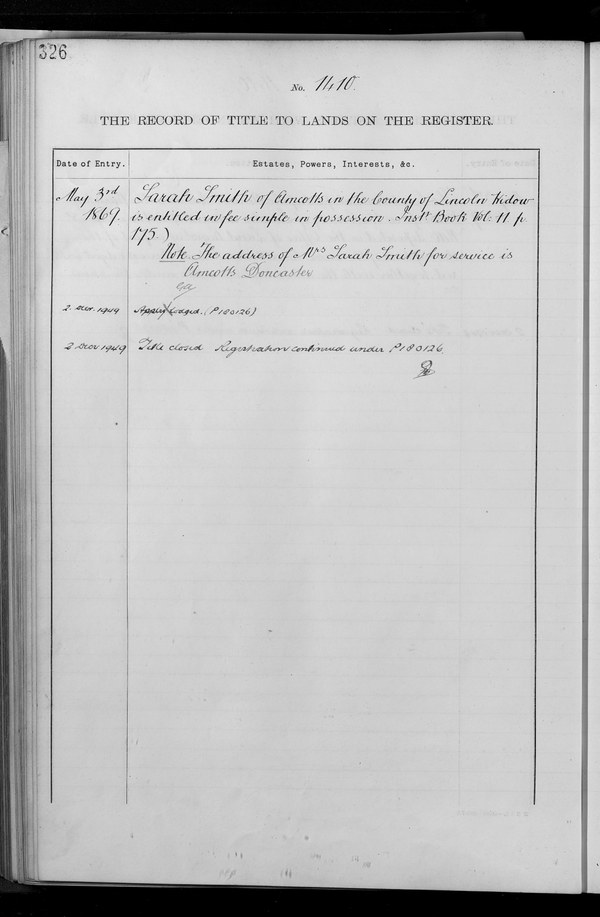 326
No. 1410.
THE RECORD OF TITLE TO LANDS ON THE REGISTER.
Date of Entry. Estates, Powers, Interests, &c.
May 3rd Sarah Smith of Amcotts in the County of Lincoln Widow
1869. is entitled in fee simple in possession. Instt Book Vol: 11 p
175.)
Note The address of Mrs Sarah Smith for service is
Amcotts Doncaster
2. Decr. 1949 lodged. (P180126)
2 Decr 1949 Title closed Registration continued under P180126.